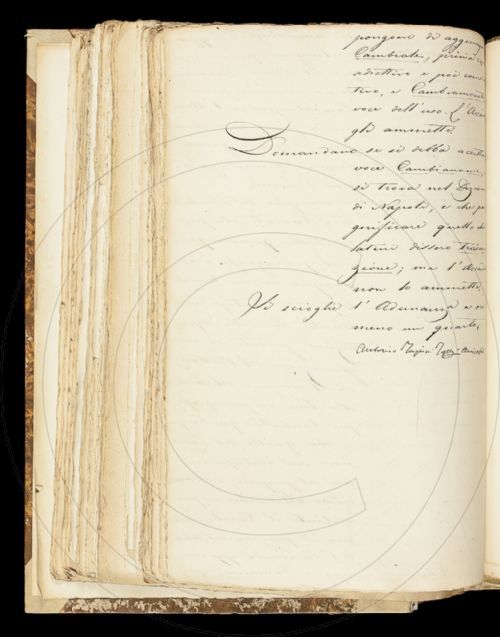 pongono di aggiun
Cambiale, prima
adiettivo e poi
tivo, e Cambiamon
voce dell'uso. L'Acca
gli ammette.
Domandano se si debba accetta
voce Cambiamone,
si trova nel Dizion
di Napoli, e che
gnificare quello che
latini dissero
zione; ma l'Accad
non lo ammette.
Si scioglie l'Adunanza a
meno un quarto.
Antonio